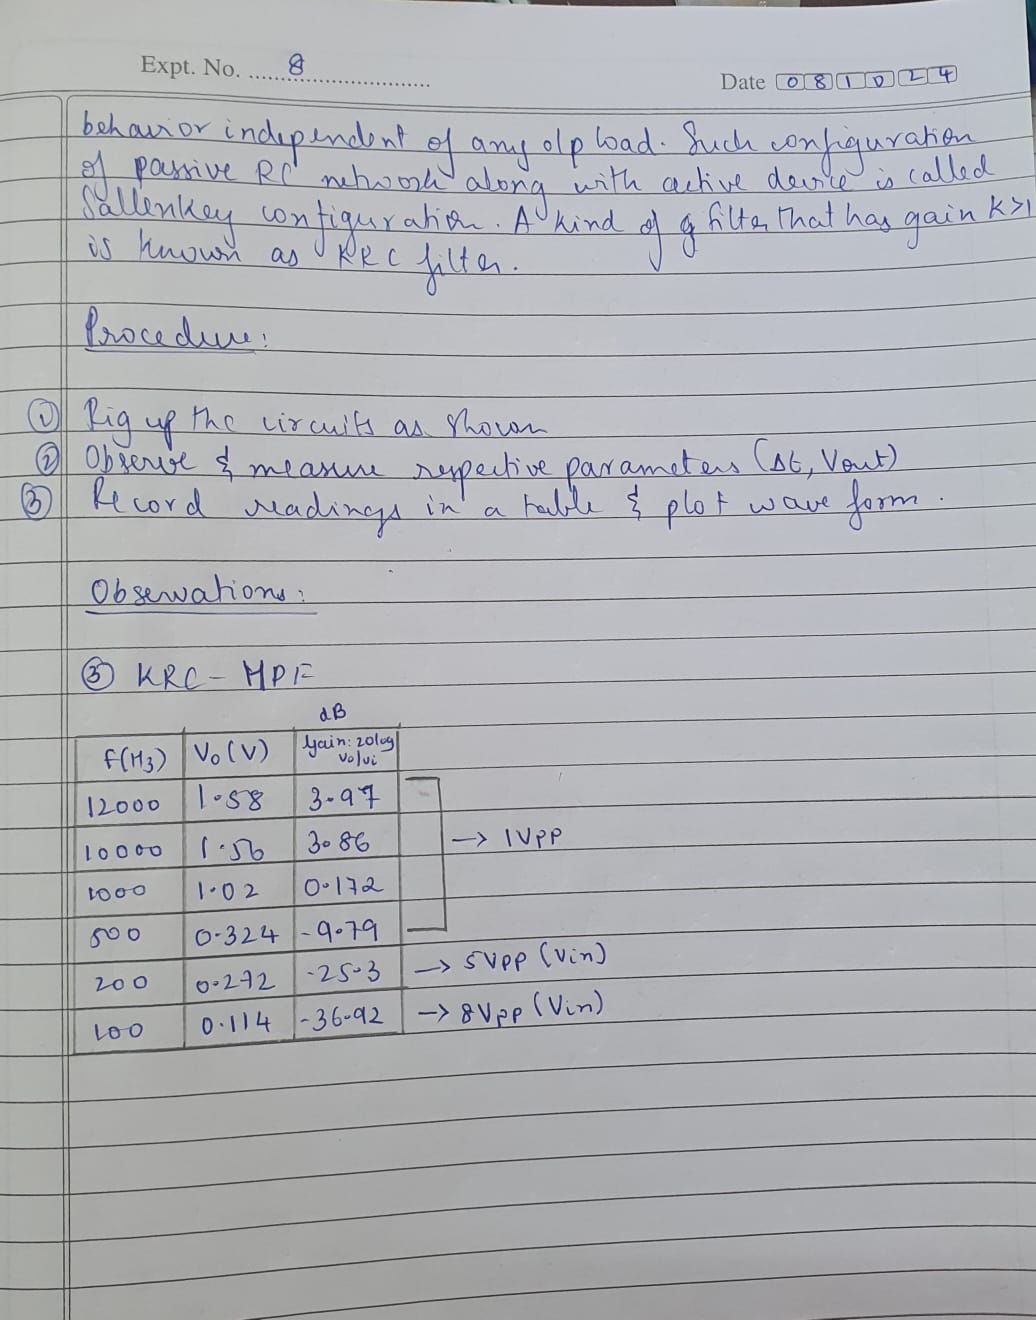 Expt. No. 8
Date 081024
behavior independent of any o/p load. Such configuration
of passive RC network along with active device is called
Sallenkey configuration. A kind of g filter that has gain K>1
is known as KRC filter.
Procedure:
① Rig up the circuits as shown
② Observe & measure respective parameters (Δt, Vout)
③ Record readings in a table & plot wave form.
Observations:
③ KRC - HPF
dB
f(Hz) Vo(V) Gain: 20log Vo/vi
12000 1.58 3.97
10000 1.56 3.86 → 1Vpp
1000 1.02 0.172
500 0.324 -9.79
200 0.272 -25.3 → 5Vpp (Vin)
100 0.114 -36.92 → 8Vpp (Vin)